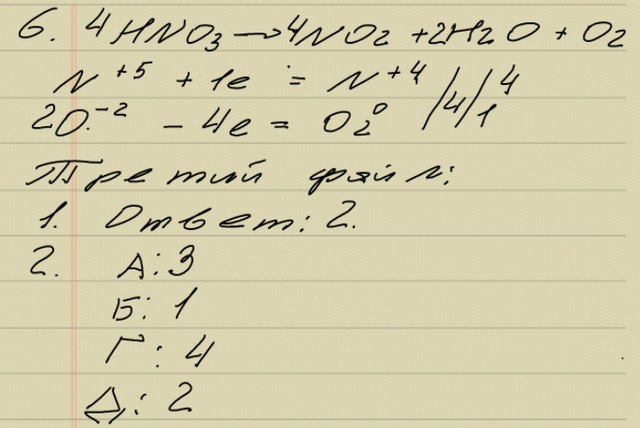 6. 4HNO3 → 4NO2 + 2H2O + O2
N+5 + 1e = N+4 / / 4
2O-2 - 4e = O2 0 /4/ 1
Третий файл:
1. Ответ: 2.
2. А: 3
Б: 1
Г: 4
Д: 2